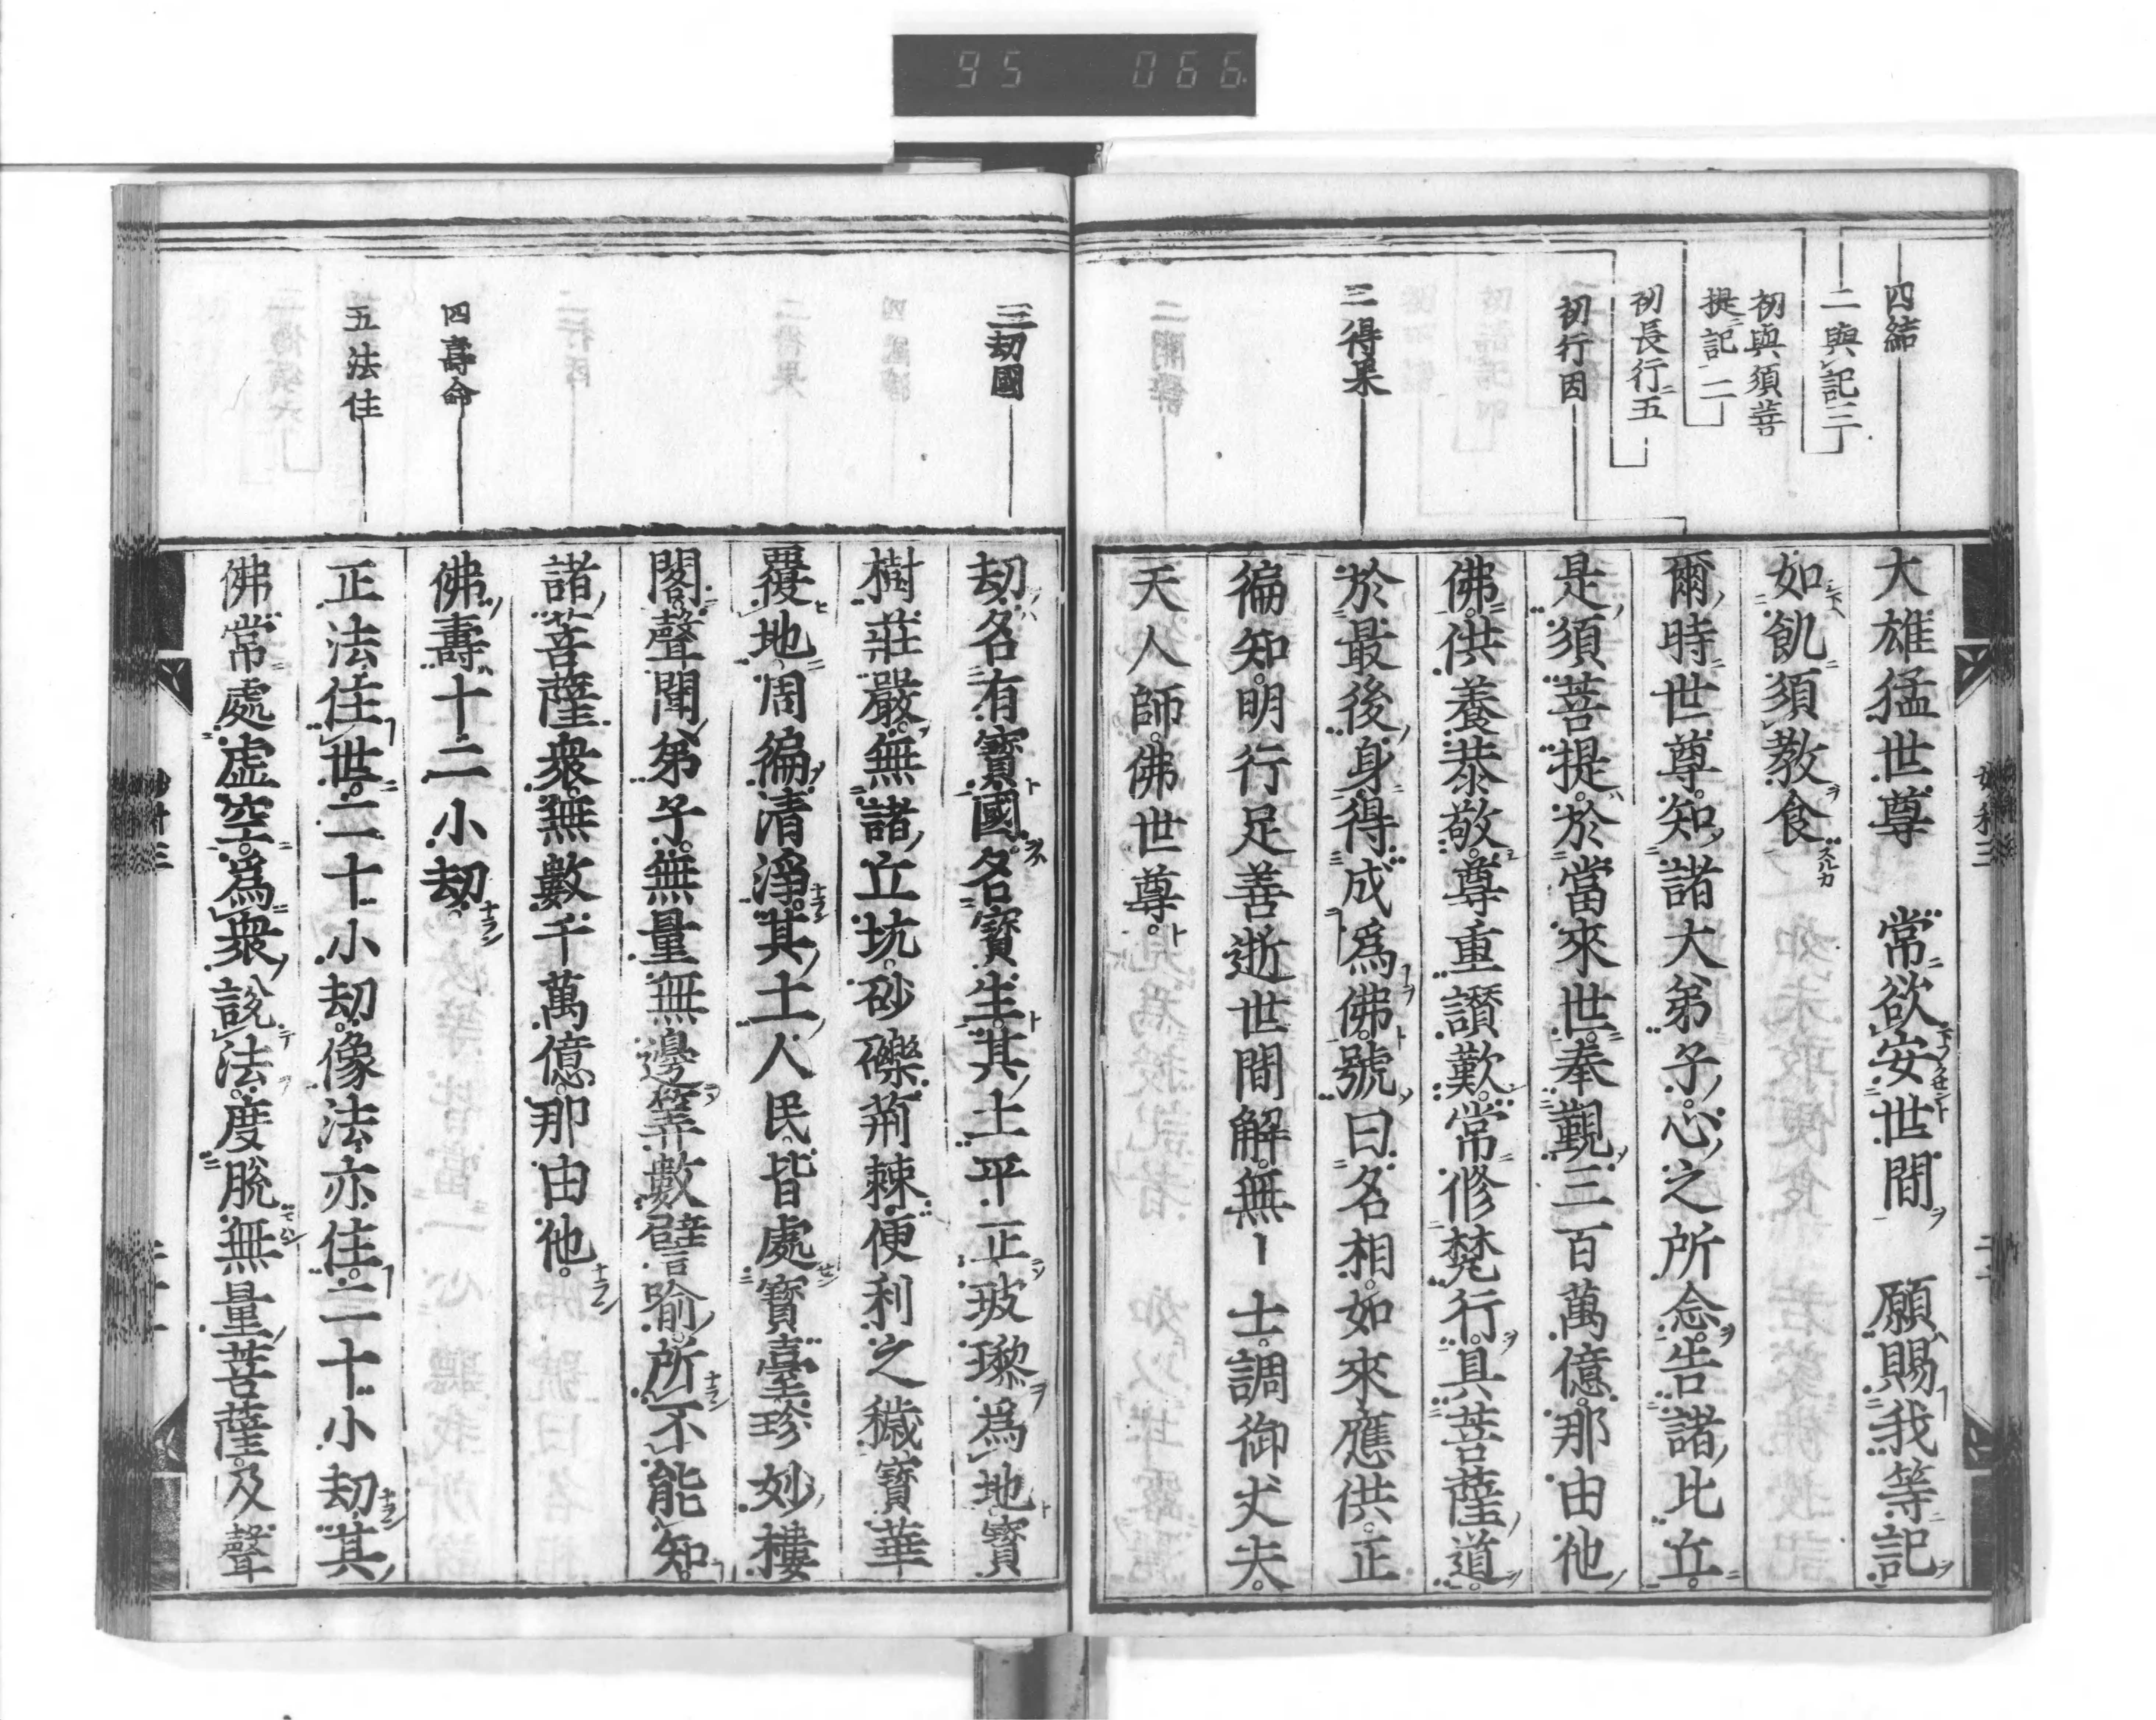 95 066
四結
二與記三
初與須菩
提記二
初長行五
初行因
二得果
大雄猛世尊 常欲安世間 願賜我等記
如飢須教食
爾時世尊知諸大弟子心之所念告諸比丘
是須菩提於當來世奉覲三百萬億那由他
佛供養恭敬尊重讚歎常修梵行具菩薩道
於最後身得成為佛號曰名相如來應供正
徧知明行足善逝世間解無上士調御丈夫
天人師佛世尊
三劫國
四壽命
五法住
劫名有寶國名寶生其土平正玻瓈為地寶
樹莊嚴無諸丘坑砂礫荊棘便利之穢寶華
覆地周徧清淨其土人民皆處寶臺珍妙樓
閣聲聞弟子無量無邊筭數譬喻所不能知
諸菩薩衆無數千萬億那由他
佛壽十二小劫
正法住世二十小劫像法亦住二十小劫其
佛常處虛空為衆說法度脫無量菩薩及聲